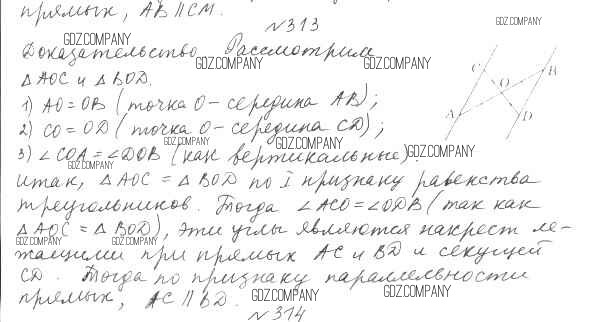 прямых, AB || CM.
N 313
GDZ.COMPANY
Доказательство Рассмотрим
GDZ.COMPANY GDZ.COMPANY GDZ.COMPANY
△AOC и △BOD.
C B
O
A D
1) AO = OB (точка O - середина AB);
2) CO = OD (точка O - середина CD);
GDZ.COMPANY GDZ.COMPANY
3) ∠COA = ∠DOB (как вертикальные).
GDZ.COMPANY GDZ.COMPANY
итак, △AOC = △BOD по I признаку равенства
треугольников. Тогда ∠ACO = ∠ODB (так как
△AOC = △BOD), эти углы являются накрест ле-
GDZ.COMPANY GDZ.COMPANY
жащими при прямых AC и BD и секущей
CD. Тогда по признаку параллельности
прямых, AC || BD.
GDZ.COMPANY GDZ.COMPANY
N 314